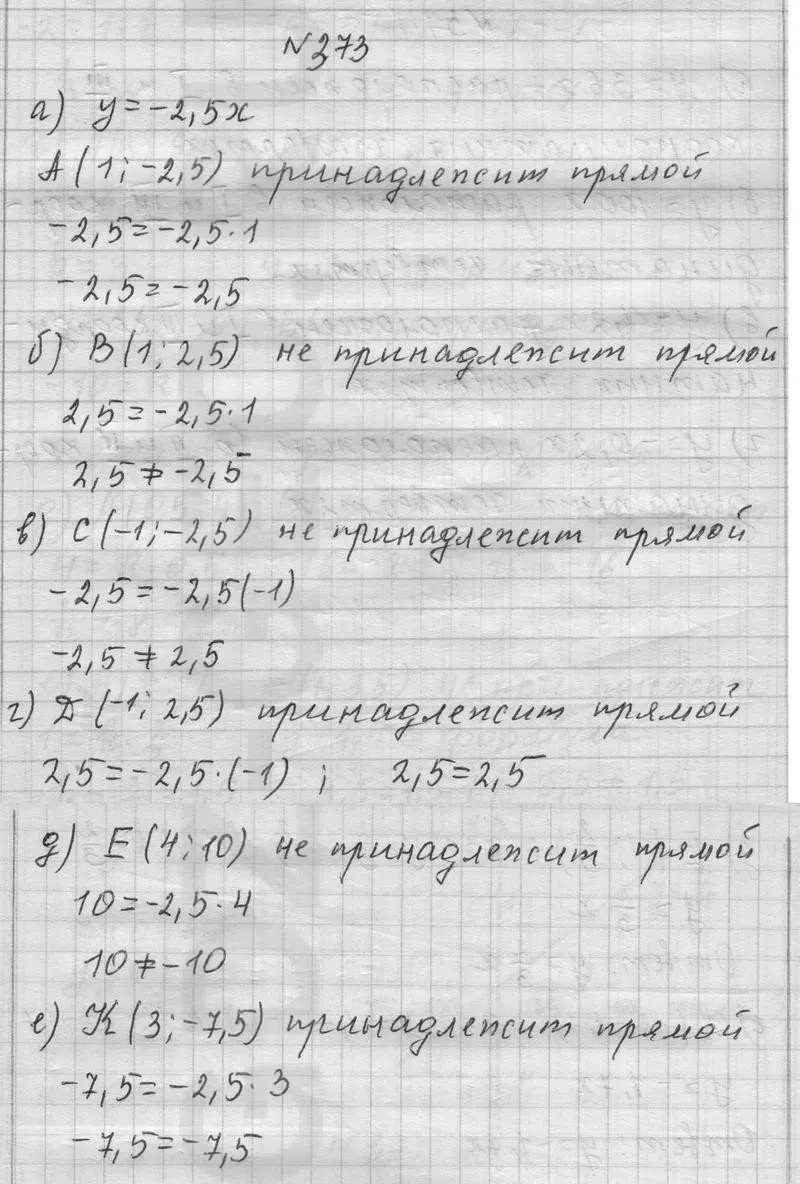 №373
а) y = -2,5x
A(1; -2,5) принадлежит прямой
-2,5 = -2,5·1
-2,5 = -2,5
б) B(1; 2,5) не принадлежит прямой
2,5 = -2,5·1
2,5 ≠ -2,5
в) C(-1; -2,5) не принадлежит прямой
-2,5 = -2,5(-1)
-2,5 ≠ 2,5
г) D(-1; 2,5) принадлежит прямой
2,5 = -2,5·(-1) ; 2,5 = 2,5
д) E(4; 10) не принадлежит прямой
10 = -2,5·4
10 ≠ -10
е) K(3; -7,5) принадлежит прямой
-7,5 = -2,5·3
-7,5 = -7,5